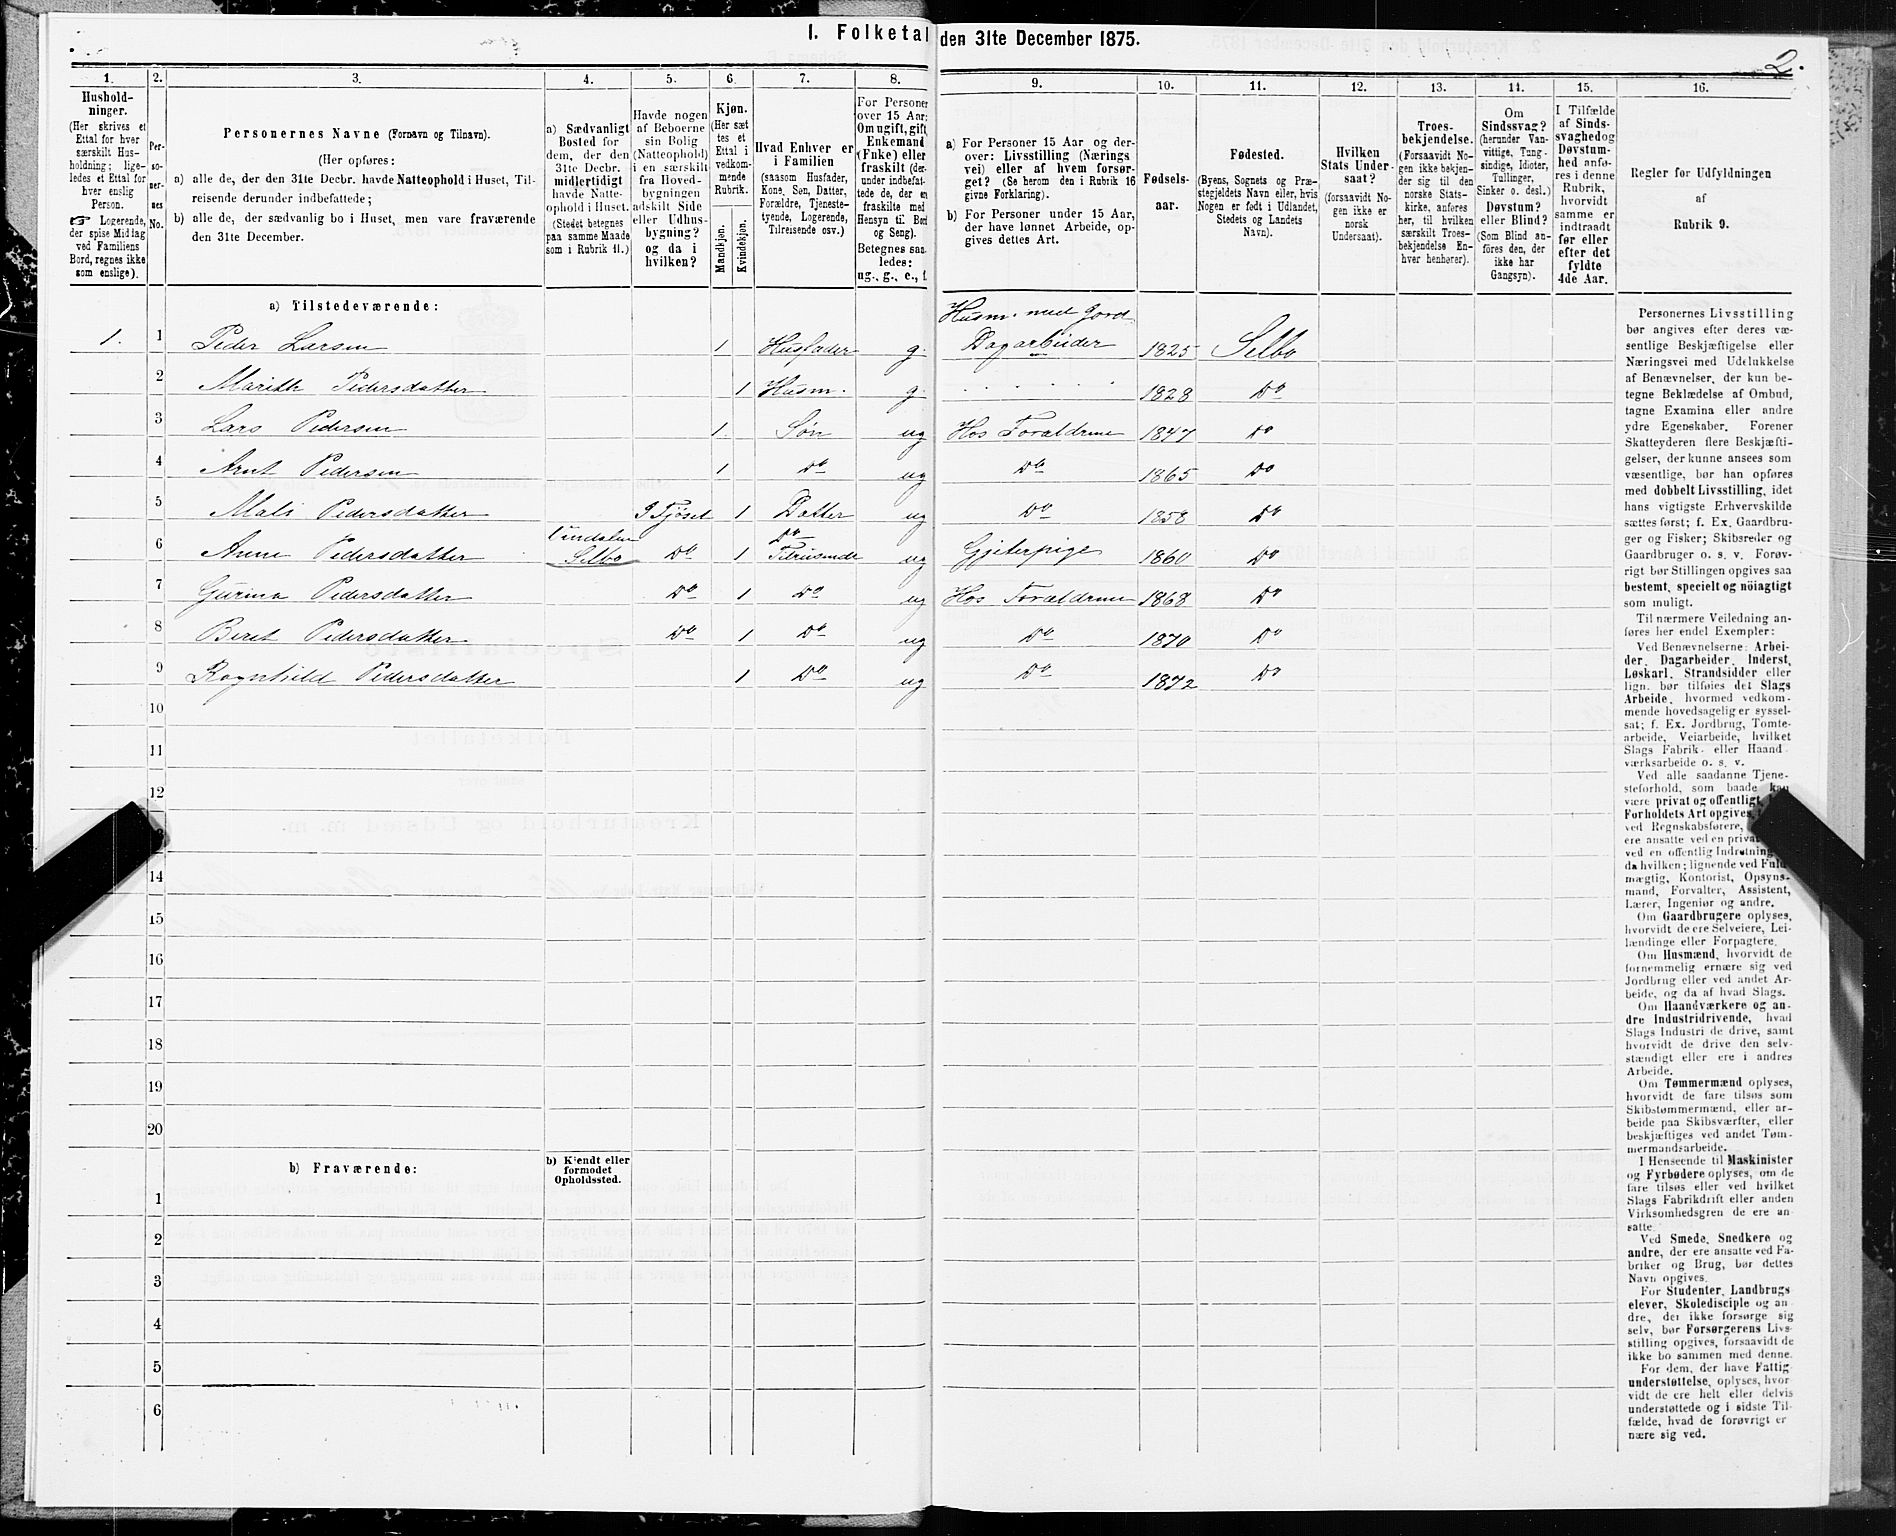 1. Folketal den 31te December 1875.
2.
1. 2. 3. 4. 5. 6. 7. 8. 9. 10. 11. 12. 13. 14. 15. 16.
Hushold-
ninger.
(Her skrives et
Ettal for hver
særskilt Hus-
holdning; lige-
ledes et Ettal for
hver enslig
Person.
☞ Logerende,
der spise Middag
ved Familiens
Bord, regnes ikke
som enslige).
Per-
so-
ner-
nes
No.
Personernes Navne (Fornavn og Tilnavn).
(Her opføres:
a) alle de, der den 31te Decbr. havde Natteophold i Huset, Til-
reisende derunder indbefattede;
b) alle de, der sædvanlig bo i Huset, men vare fraværende
den 31te December.
a) Sædvanligt
Bosted for
dem, der den
31te Decbr.
midlertidigt
havde Natte-
ophold i Huset.
(Stedet betegnes
paa samme Maade
som i Rubrik 11.)
Havde nogen
af Beboerne
sin Bolig
(Natteophold)
i en særskilt
fra Hoved-
bygningen
adskilt Side
eller Udhus-
bygning?
og da i
hvilken?
Kjøn.
(Her sæt
tes et
Ettal i
vedkom-
mende
Rubrik.
Mandkjøn.
Kvindekjøn.
Hvad Enhver er
i Familien
(saasom Husfader,
Kone, Søn, Datter,
Forældre, Tjeneste-
tyende, Logerende,
Tilreisende osv.)
For Personer
over 15 Aar:
Om ugift, gift,
Enkemand
(Enke) eller
fraskilt (der-
under indbefat-
tede de, der ere
fraskilte med
Hensyn til Bord
og Seng).
Betegnes saa-
ledes:
ug., g., e., f.
a) For Personer 15 Aar og der-
over: Livsstilling (Nærings
vei) eller af hvem forsør-
get? (Se herom den i Rubrik 16
givne Forklaring).
b) For Personer under 15 Aar,
der have lønnet Arbeide, op-
gives dettes Art.
Fødsels-
aar.
Fødested.
(Byens, Sognets og Præ-
stegjeldets Navn eller, hvis
Nogen er født i Udlandet,
Stedets og Landets
Navn).
Hvilken
Stats Under-
saat?
(forsaavidt No-
gen ikke er
norsk
Undersaat).
Troes-
bekjendelse.
(Forsaavidt No-
gen ikke bekjen-
der sig til den
norske Stats-
kirke, anføres
her, til hvilken
særskilt Troes-
bekjendelse En-
hver henhører).
Om
Sindssvag?
(herunder Van-
vittige, Tung-
sindige, Idioter,
Tullinger,
Sinker o. desl.)
Døvstum?
eller Blind?
(Som Blind an-
føres den, der
ikke har
Gangsyn).
I Tilfælde
af Sinds-
svaghed og
Døvstum-
hed anfø-
res i denne
Rubrik,
hvorvidt
samme er
indtraadt
før eller
efter det
fyldte
4de Aar.
Regler for Udfyldningen
af
Rubrik 9.
a) Tilstedeværende:
Husm. med Jord
1. 1 Peder Larsen 1 Husfader g. Dagarbeider 1825 Selbo
2 Marith Pedersdatter 1 Husm. g. 1828 Do
3 Lars Pedersen 1. Søn ug Hos Forældrene 1847 Do
4 Arnt Pedersen 1 Do ug Do 1865 Do
5 Mali Pedersdatter I Fjöset 1 Datter ug Do 1858 Do
Do
6 Anne Pedersdatter Selbo Do 1 Tilreisende ug Gjeterpige 1860 Do
7 Gurina Pedersdatter Do 1 Do ug Hos Forældrene 1868 Do
8 Beret Pedersdatter Do 1 Do ug Do 1870 Do
9 Ragnhild Pedersdatter 1 Do ug Do 1872 Do
10
11
12
14
15
16
17
18
19
20
b) Fraværende:
b) Kjendt eller
formodet
Opholdssted.
1
2
3
4
5
6
Personernes Livsstilling
bør angives efter deres væ-
sentlige Beskjæftigelse eller
Næringsvei med Udelukkelse
af Benævnelser, der kun be-
tegne Beklædelse af Ombud,
tagne Examina eller andre
ydre Egenskaber. Forener
Skatteyderen flere Beskjæfti-
gelser, der kunne ansees som
væsentlige, bør han opføres
med dobbelt Livsstilling, idet
hans vigtigste Erhvervskilde
sættes først; f. Ex. Gaardbru-
ger og Fisker; Skibsreder og
Gaardbruger o. s. v. Forøv-
rigt bør Stillingen opgives saa
bestemt, specielt og nøiagtigt
som muligt.
Til nærmere Veiledning an-
føres her endel Exempler:
Ved Benævnelserne: Arbei-
der, Dagarbeider, Inderst,
Løskarl, Strandsidder eller
lign. bør tilføies det Slags
Arbeide, hvormed vedkom-
mende hovedsagelig er syssel-
sat; f. Ex. Jordbrug, Tomte-
arbeide, Veiarbeide, hvilket
Slags Fabrik- eller Haand-
værksarbeide o. s. v.
Ved alle saadanne Tjene-
steforhold, som baade kan
være privat og offentligt,
Forholdets Art opgives,
ved Regnskabsførere,
ere ansatte ved en privat
ved en offentlig Indretning
da hvilken; lignende ved Fuld-
mægtig, Kontorist, Opsyns-
mand, Forvalter, Assistent,
Lærer, Ingeniør og andre.
Om Gaardbrugere oplyses,
hvorvidt de ere Selveiere, Lei-
lændinge eller Forpagtere.
Om Husmænd, hvorvidt de
fornemmelig ernære sig ved
Jordbrug eller ved andet Ar-
beide, og da af hvad Slags.
Om Haandværkere og an-
dre Industridrivende, hvad
Slags Industri de drive, samt
hvorvidt de drive den selv-
stændigt eller ere i andres
Arbeide.
Om Tømmermænd oplyses,
hvorvidt de fare tilsøs som
Skibstømmermænd, eller ar-
beide paa Skibsværfter, eller
beskjæftiges ved andet Tøm-
mermandsarbeide.
I Henseende til Maskinister
og Fyrbødere oplyses, om de
fare tilsøs eller ved hvilket
Slags Fabrikdrift eller anden
Virksomhedsgren de ere an-
satte.
Ved Smede, Snedkere og
andre, der ere ansatte ved Fa-
briker og Brug, bør dettes
Navn opgives.
For Studenter, Landbrugs
elever, Skoledisciple og an-
dre, der ikke forsørge sig
selv, bør Forsørgerens Livs-
stilling opgives, forsaavidt de
ikke bo sammen med denne.
For dem, der have Fattig-
understøttelse, oplyses, hvor-
vidt de ere helt eller delvis
understøttede og i sidste Til-
fælde, hvad de forøvrigt er-
nære sig ved.